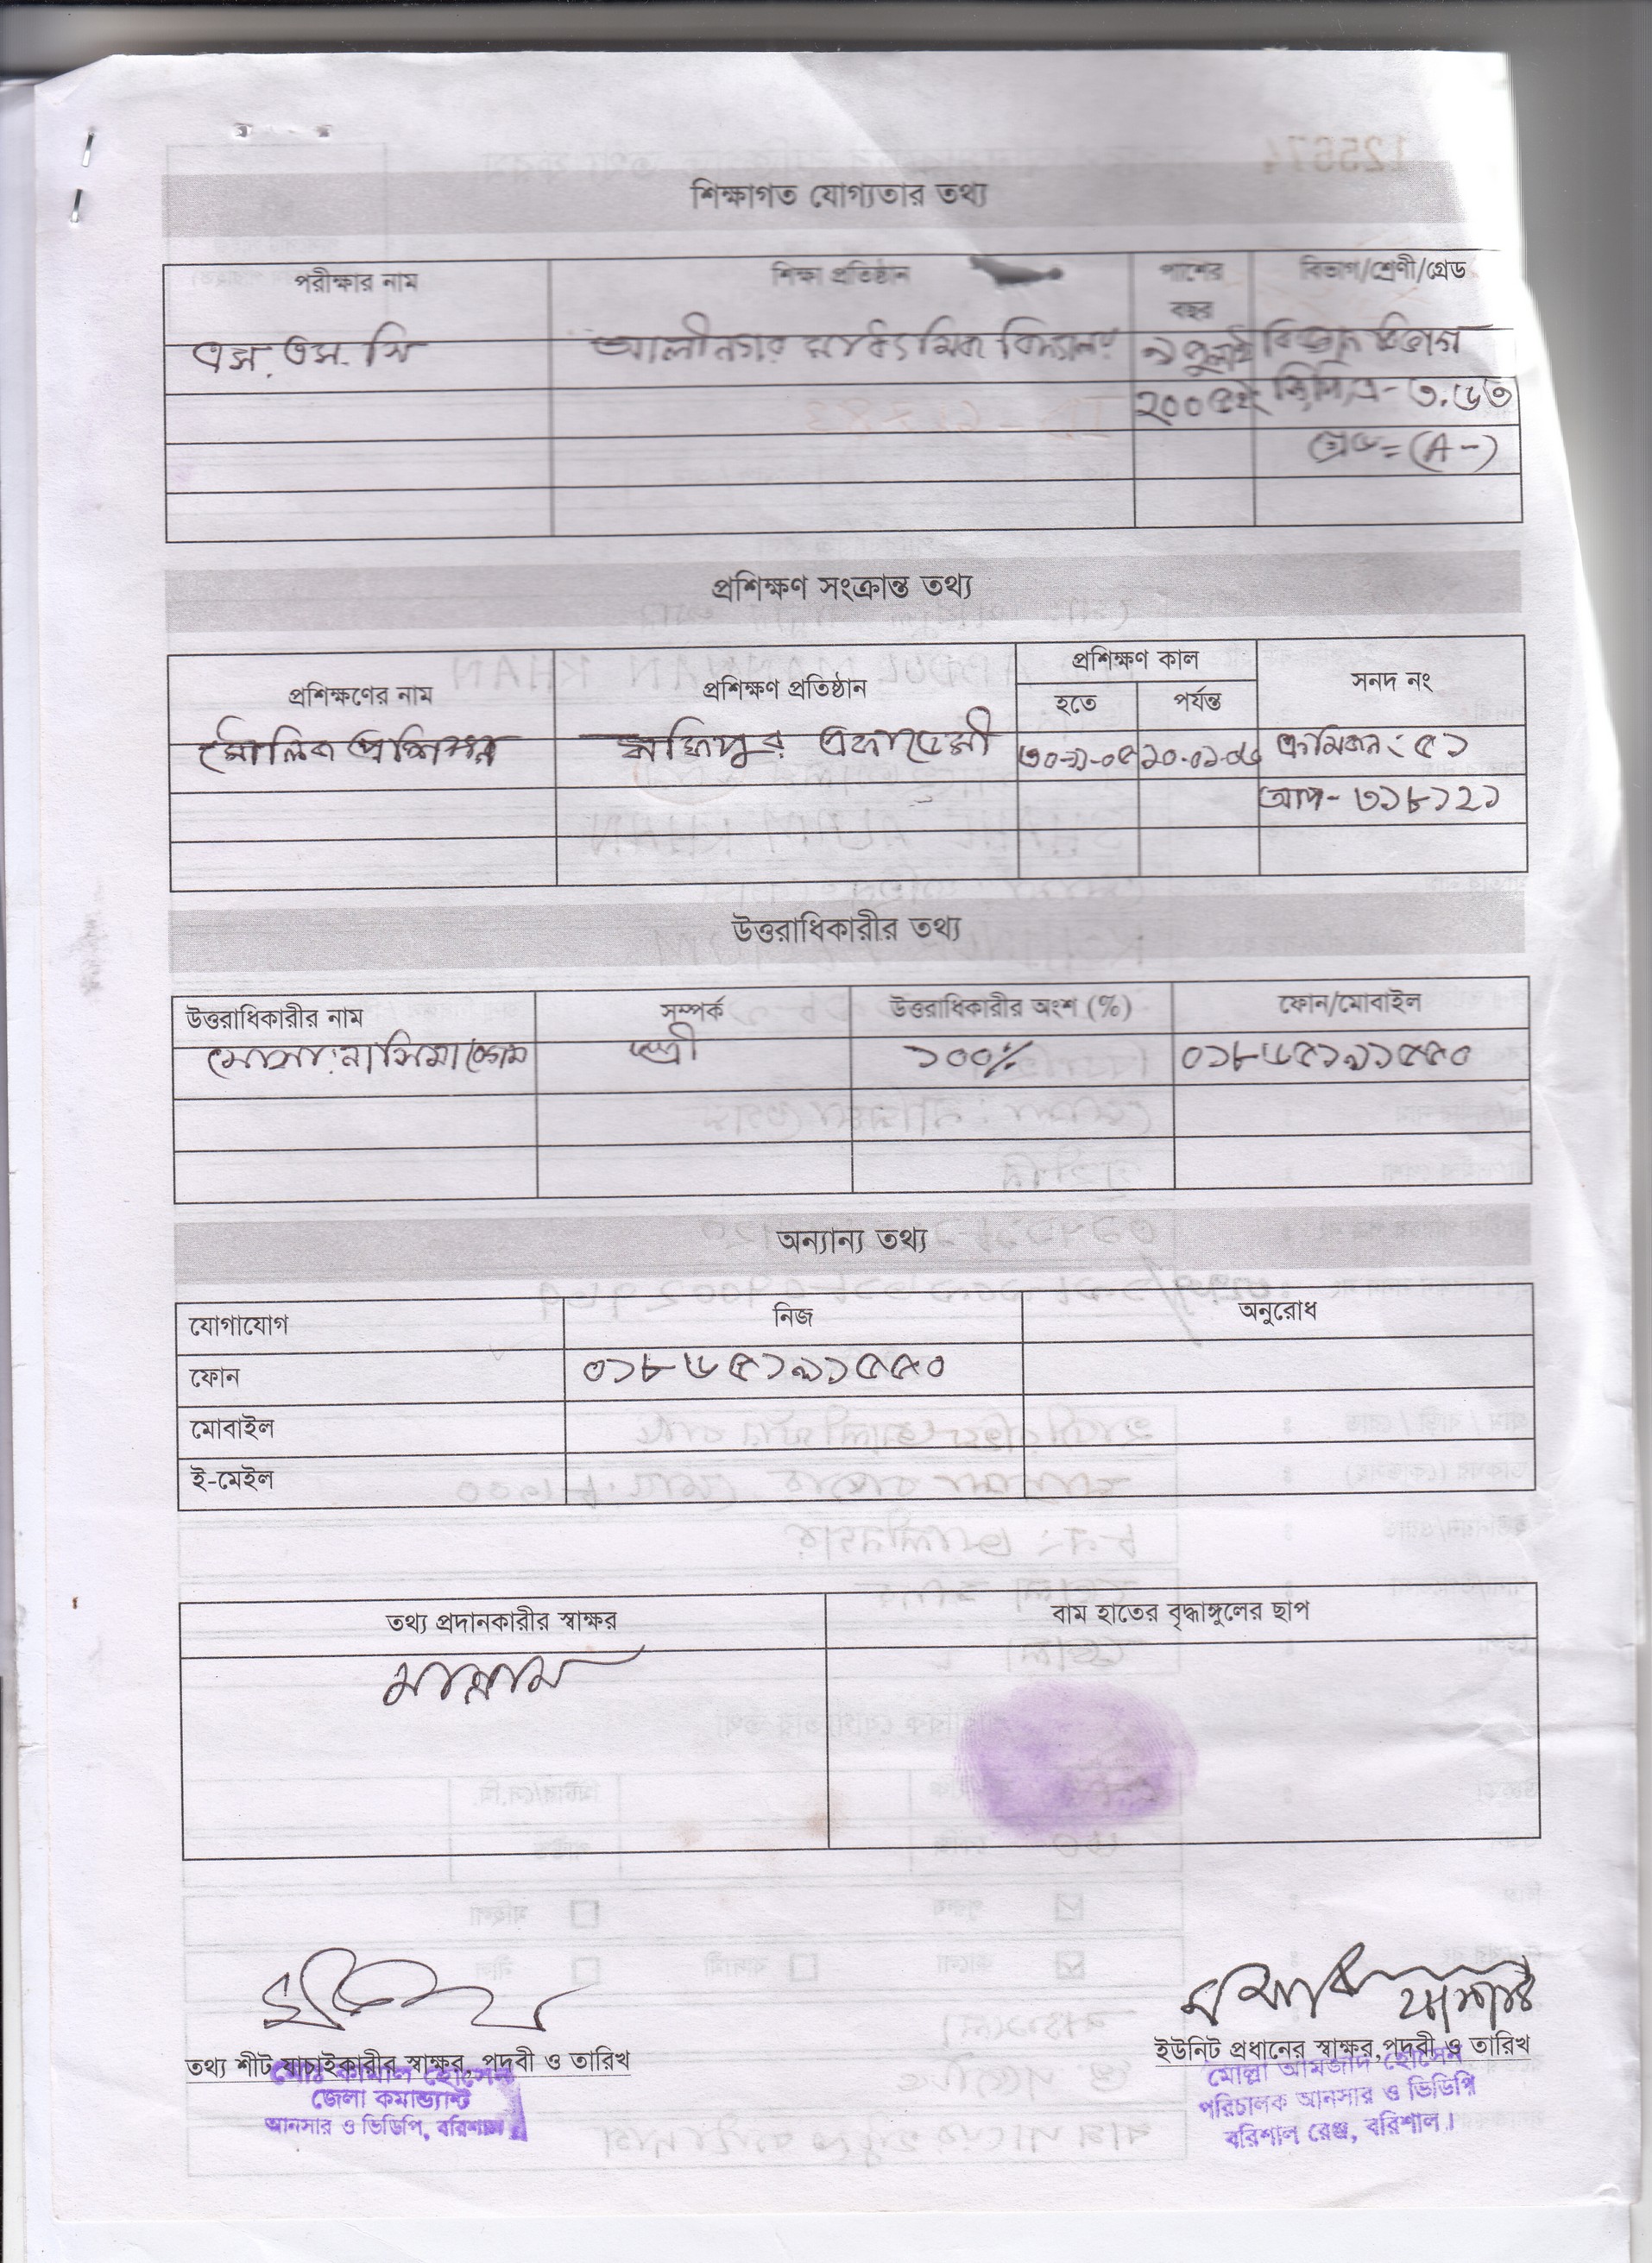 শিক্ষাগত যোগ্যতার তথ্য
পরীক্ষার নাম শিক্ষা প্রতিষ্ঠান পাশের বছর বিভাগ/শ্রেণী/গ্রেড
এস. এস. সি আলীনগর মাধ্যমিক বিদ্যালয় ৯ জুলাই বিজ্ঞান বিভাগ
২০০৫ইং জিপিএ- ৩.৬৩
গ্রেড=(A-)
প্রশিক্ষণ সংক্রান্ত তথ্য
প্রশিক্ষণের নাম প্রশিক্ষণ প্রতিষ্ঠান প্রশিক্ষণ কাল সনদ নং
হতে পর্যন্ত
মৌলিক প্রশিক্ষণ সফিপুর একাডেমী ৩০-১১-০৫ ২০-০১-০৬ ক্রমিকনং: ৫১
আপ- ৩১৮১২১
উত্তরাধিকারীর তথ্য
উত্তরাধিকারীর নাম সম্পর্ক উত্তরাধিকারীর অংশ (%) ফোন/মোবাইল
মোসা: নাসিমা বেগম স্ত্রী ১০০% ০১৮৬৫১৯১৫৫০
অন্যান্য তথ্য
যোগাযোগ নিজ অনুরোধ
ফোন ০১৮৬৫১৯১৫৫০
মোবাইল
ই-মেইল
তথ্য প্রদানকারীর স্বাক্ষর বাম হাতের বৃদ্ধাঙ্গুলের ছাপ
মান্নান
তথ্য শীট যাচাইকারীর স্বাক্ষর, পদবী ও তারিখ ইউনিট প্রধানের স্বাক্ষর,পদবী ও তারিখ
মোঃ কামাল হোসেন
জেলা কমান্ড্যান্ট
আনসার ও ভিডিপি, বরিশাল
মোল্লা আমজাদ হোসেন
পরিচালক আনসার ও ভিডিপি
বরিশাল রেঞ্জ, বরিশাল।